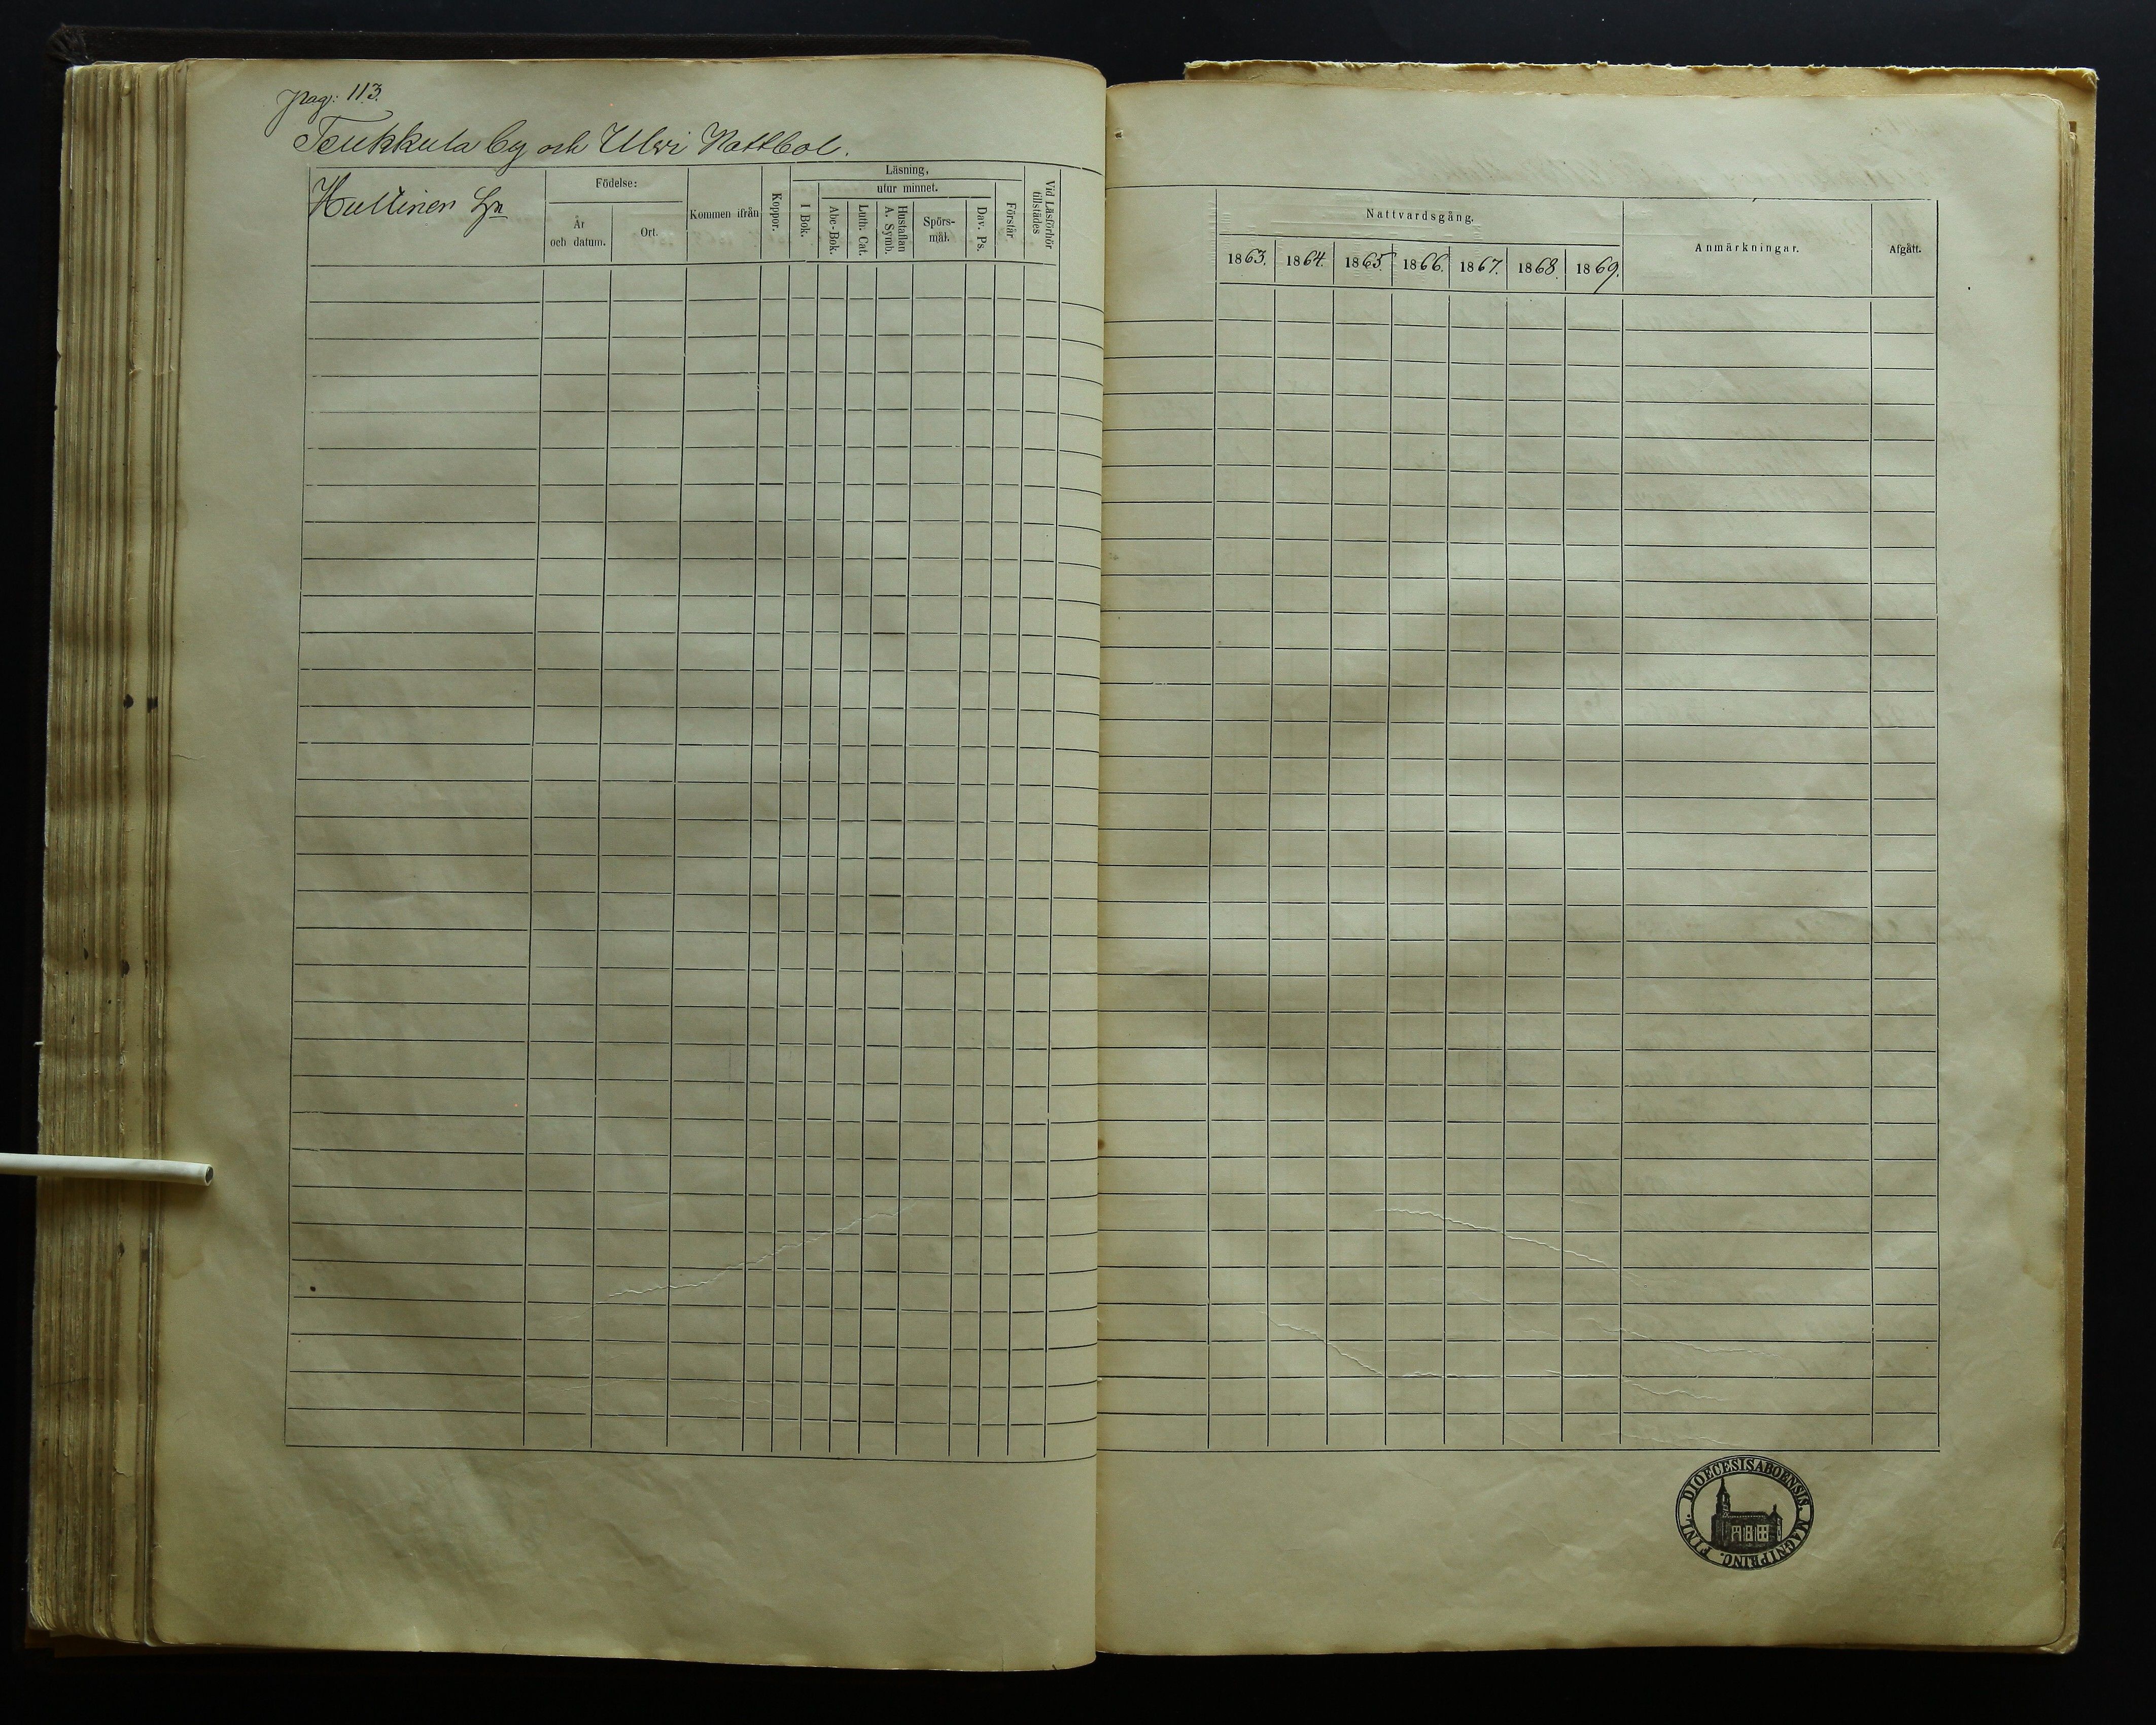 pag: 113.
Teukkula by och Ulvi Nattbol.
Hullinen
Födelse:
År
och datum.
Ort.
Kommen ifrån
Koppor.
Läsning,
I Bok.
utur minnet.
Abc-Bok.
Luth. Cat.
Hustaflan
A. Symb.
Spörs-
mål.
Dav. Ps.
Förstår
Vid Läsförhör
tillstädes
Nattvardsgång.
1863. 1864. 1865. 1866. 1867. 1868. 1869.
Anmärkningar.
Afgått.
DIOECESIS ABOENSIS. MAGNI PRINC. FINL.